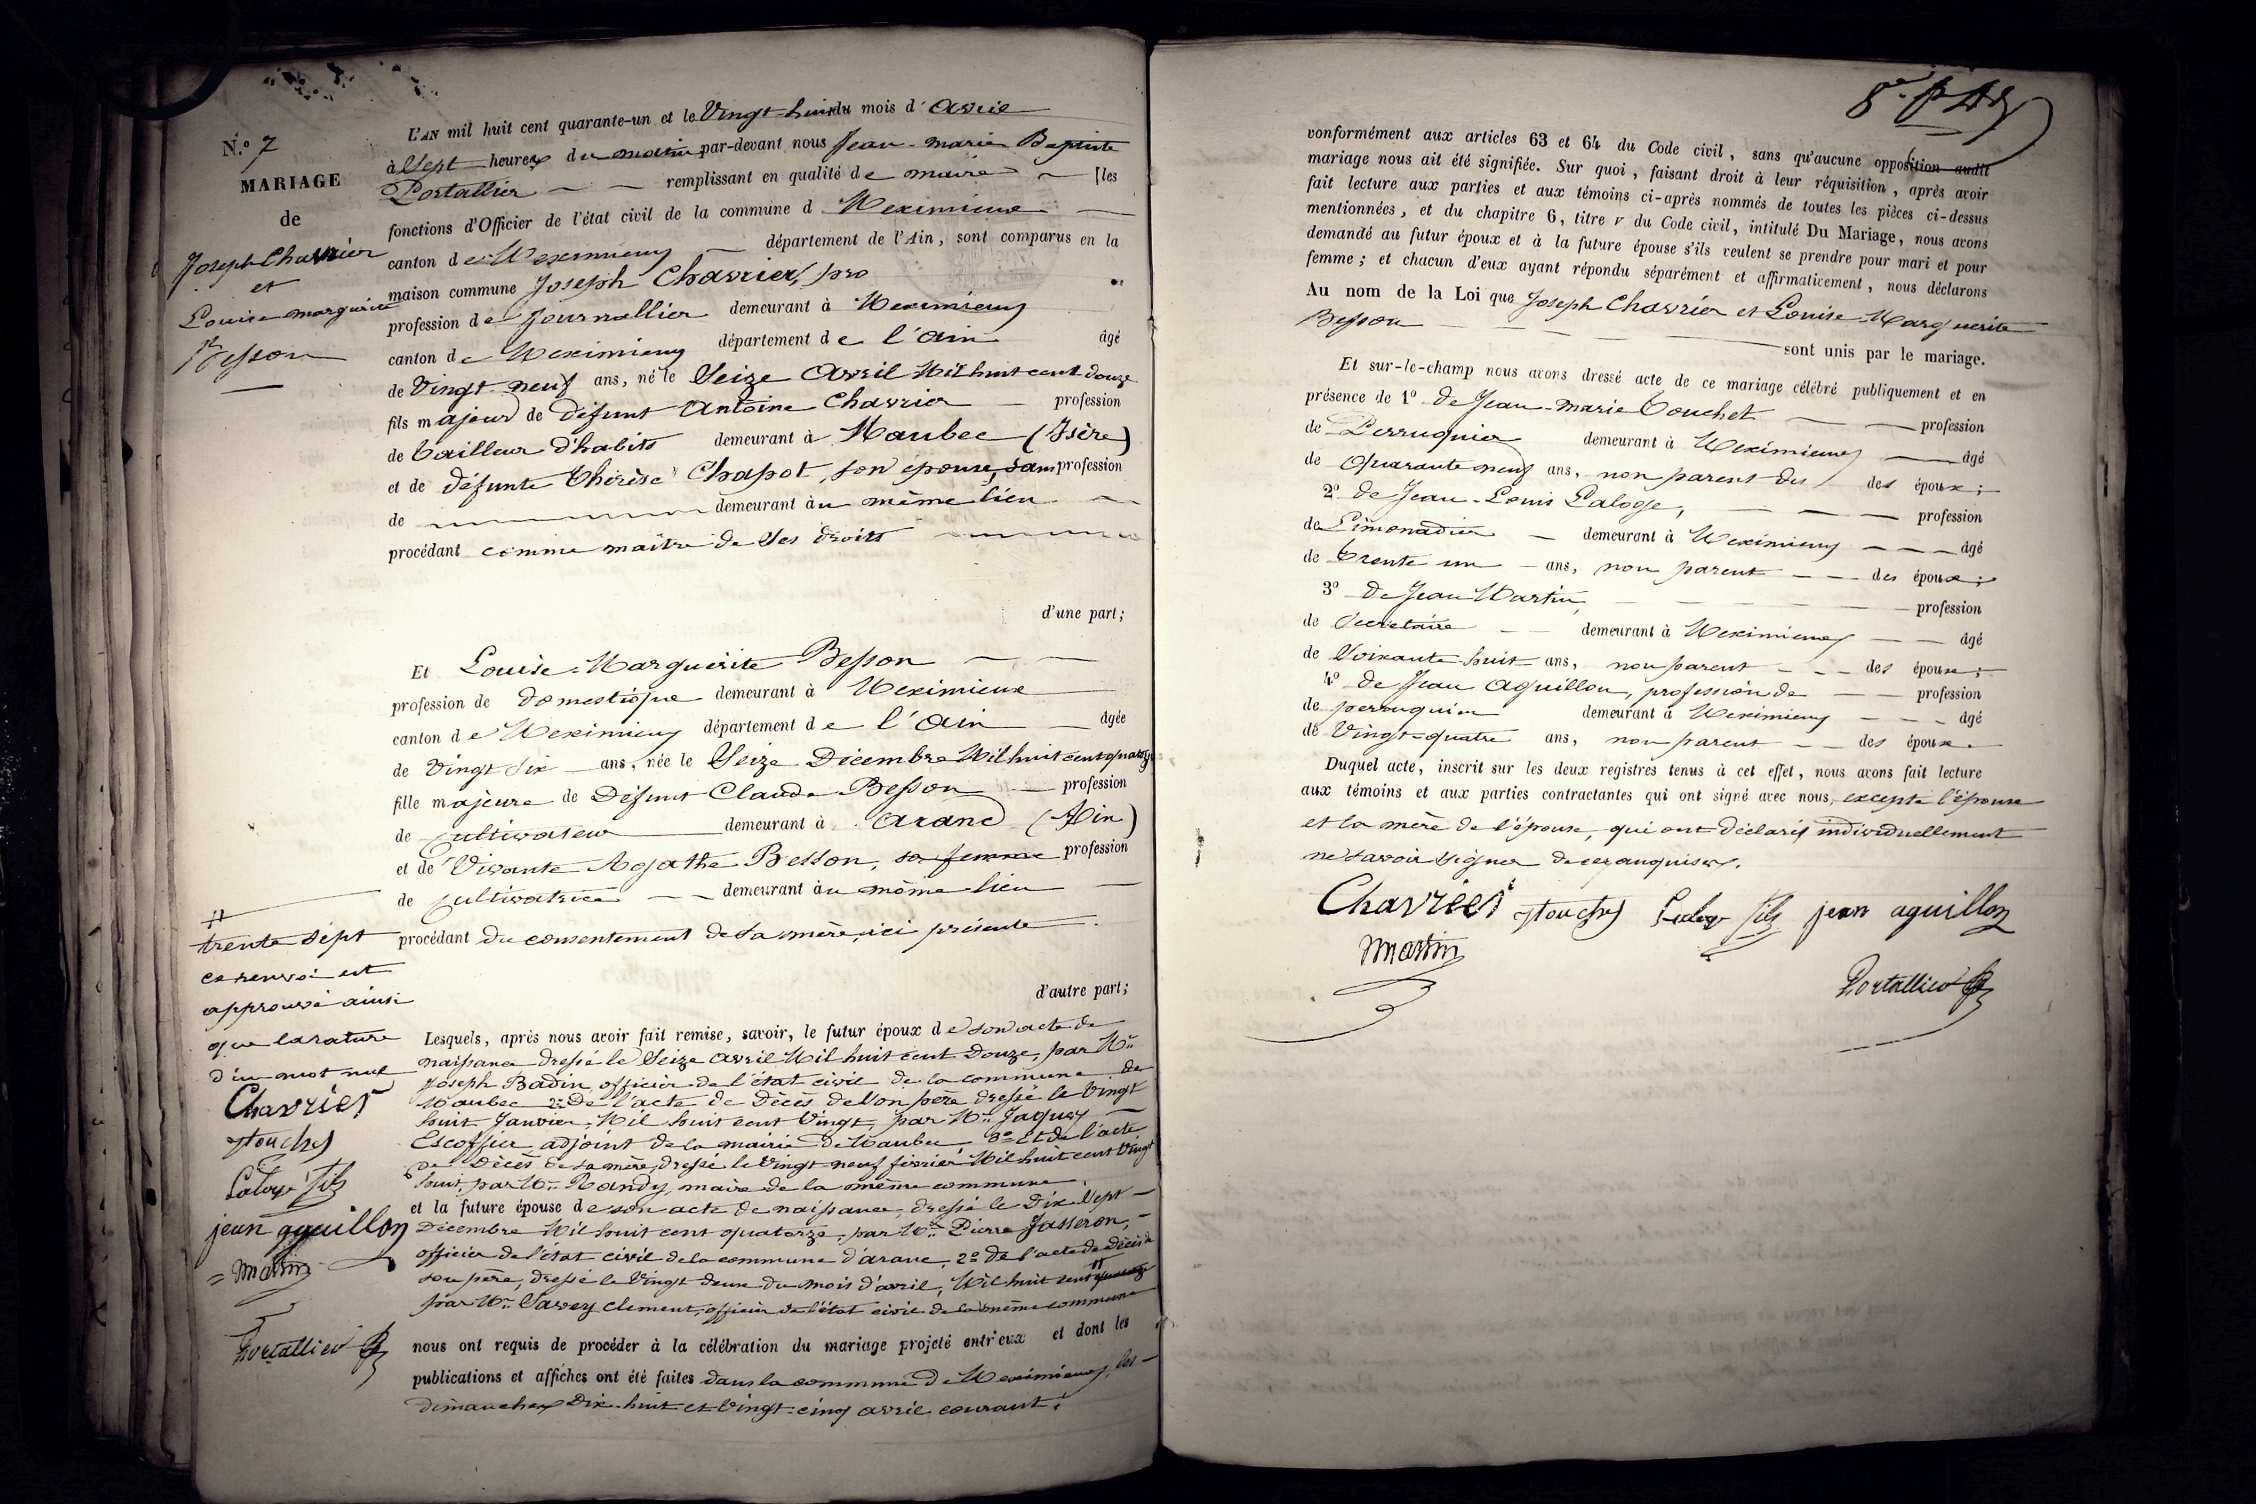 N.º 7
MARIAGE
de
Joseph Chavrier
et
Louise marguerite
Besson
L'AN mil huit cent quarante-un et le Vingt-huit du mois d'avril
à Sept heures du matin par-devant nous Jean-marie Baptiste
Portallier remplissant en qualité de maire [les
fonctions d'Officier de l'état civil de la commune d Meximieux
canton de Meximieux département de l'Ain, sont comparus en la
maison commune Joseph Chavrier, pro
profession de Journallier demeurant à Meximieux
canton de Meximieux département de l'ain âgé
de Vingt-neuf ans, né le Seize Avril Mil huit cent douze
fils majeur de défunt Antoine Chavrier profession
de tailleur d'habits demeurant à Maubec (Isère)
et de défunte Thérèse Chapot, son épouse, sans profession
de demeurant au même lieu
procédant comme maître de ses droits
d'une part;
Et Louise-Marguerite Besson
profession de domestique demeurant à Meximieux
canton de Meximieux département de l'ain âgée
de Vingt Six ans, née le Seize Décembre Mil huit cent quatorze
fille majeure de Défunt Claude Besson profession
de Cultivateur demeurant à Aranc (Ain)
et de Vivante Agathe Besson, sa femme profession
de Cultivatrice demeurant au même lieu
procédant du consentement de sa mère, ici présente.
d'autre part;
Lesquels, après nous avoir fait remise, savoir, le futur époux de son acte de
naissance dressé le Seize avril Mil huit cent Douze, par Mr
Joseph Badin officier de l'état civil de la commune de
Maubec 2º De l'acte de Décès de Son père dressé le Vingt
huit Janvier, Mil huit cent Vingt, par Mr Jaquey
Escoffier adjoint de la mairie de Maubec 3º Et de l'acte
de Décès de sa mère, dressé le Vingt neuf février Mil huit cent Vingt
huit, par Mr Randy, maire de la même commune.
et la future épouse de son acte de naissance, dressé le Dix Sept
Décembre Mil huit cent quatorze, par Mr Pierre Jasseron,
officier de l'état civil de la commune d'aranc, 2º de l'acte de décès de
son père, dressé le Vingt deux du mois d'avril, Mil huit cent #
par Mr Savey Clement, officier de l'état civil de la même commune
nous ont requis de procéder à la célébration du mariage projeté entr'eux et dont les
publications et affiches ont été faites dans la commune de Meximieux, les
dimanches Dix-huit et Vingt-cinq avril courant;
#
trente sept
ce renvoi est
approuvé ainsi
que la rature
d'un mot nul
Chavrier
Touchet
Laloge fils
jean aguillon
Martin
Portallier
conformément aux articles 63 et 64 du Code civil, sans qu'aucune opposition audit
mariage nous ait été signifiée. Sur quoi, faisant droit à leur réquisition, après avoir
fait lecture aux parties et aux témoins ci-après nommés de toutes les pièces ci-dessus
mentionnées, et du chapitre 6, titre V du Code civil, intitulé Du Mariage, nous avons
demandé au futur époux et à la future épouse s'ils veulent se prendre pour mari et pour
femme; et chacun d'eux ayant répondu séparément et affirmativement, nous déclarons
Au nom de la Loi que Joseph Chavrier et Louise-Marguerite
Besson
sont unis par le mariage.
Et sur-le-champ nous avons dressé acte de ce mariage célébré publiquement et en
présence de 1º de Jean-marie Touchet profession
de Perruquier demeurant à Meximieux âgé
de Quarante neuf ans, non parent des des époux;
2º de Jean-Louis Laloge, profession
de Limonadier demeurant à Meximieux âgé
de trente un ans, non parent des époux;
3º de Jean Martin, profession
de Secrétaire demeurant à Meximieux âgé
de Soixante huit ans, non parent des époux;
4º de Jean Aguillon, profession de profession
de perruquier demeurant à Meximieux âgé
de Vingt-quatre ans, non parent des époux.
Duquel acte, inscrit sur les deux registres tenus à cet effet, nous avons fait lecture
aux témoins et aux parties contractantes qui ont signé avec nous, excepté l'épouse
et la mère de l'épouse, qui ont déclaré individuellement
ne savoir signer de ce enquises.
Chavrier Touchet Laloge fils jean aguillon
Martin
Portallier